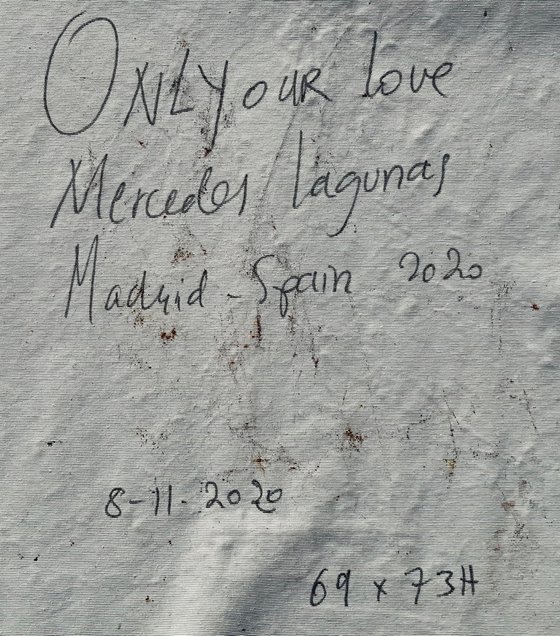 ONLYOUR love
Mercedes Lagunas
Madrid - Spain 2020
8-11-2020
69 x 73H